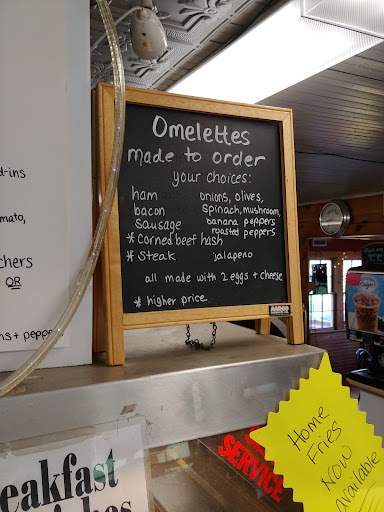 Omelettes
made to order
your choices:
ham onions, olives,
bacon spinach, mushroom,
sausage banana peppers
roasted peppers
* Corned beef hash
* Steak jalapeno
all made with 2 eggs + cheese
* higher price
AARCO
d-ins
mato,
chers
OR
ns + peppe
SERVICE
Home
Fries
Now
available
eakfast